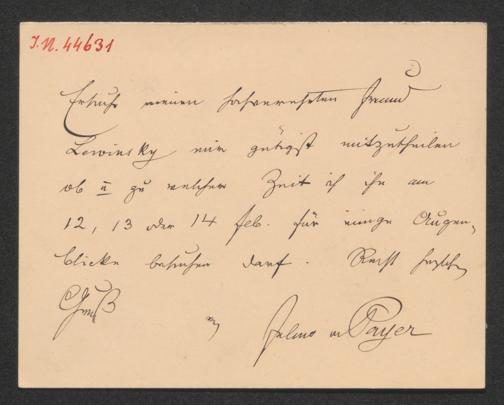 I.N. 44631
Ersuche meinen hochverehrten Freund
Lewinsky mir gütigst mitzutheilen
ob u zu welcher Zeit ich ihn am
12, 13 oder 14 Feb. für einige Augen-
blicke besuchen darf. Recht herzlichen
Gruß
Julius v Payer